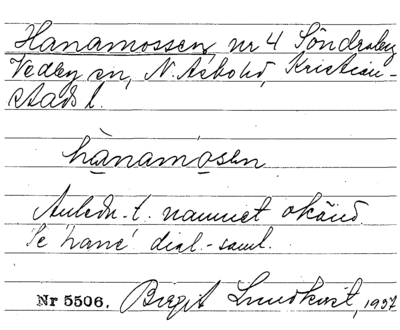 Hanamossen, nr 4 Söndraby
Vedby sn, N. Åsbo hd, Kristian-
stads l.
hànamósen
Anledn. t. namnet okänd.
Se 'hane' dial.-saml.
Nr 5506. Birgit Lundkvist, 1937